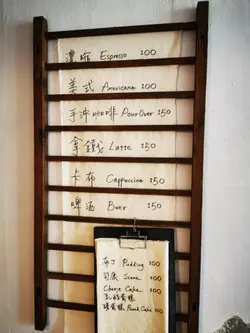 濃縮 Espresso 100
美式 Americano 100
手沖咖啡 Pour Over 150
拿鐵 Latte 150
卡布 Cappuccino 150
啤酒 Beer 150
布丁 Pudding 100
司康 Scone 100
Cheese Cake 100
乳酪蛋糕
磅蛋糕 Pound Cake 100